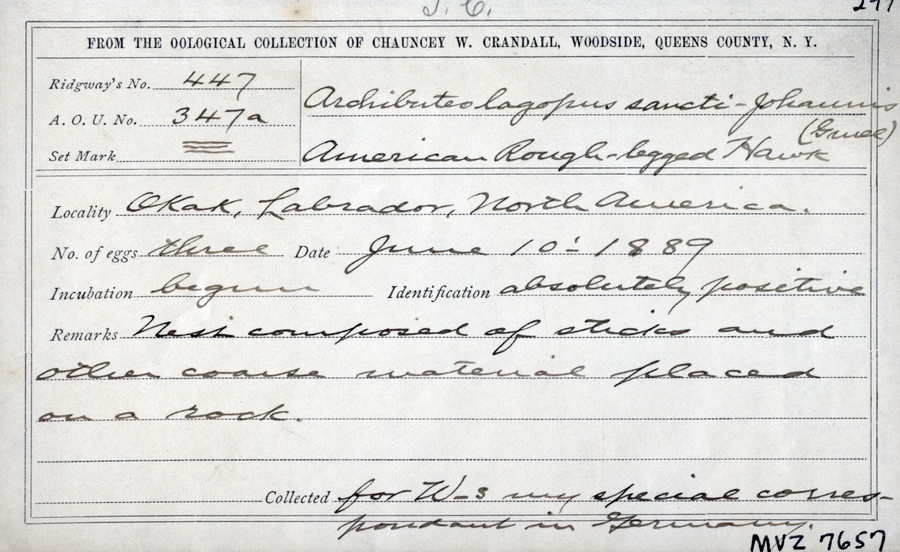 T. C.
FROM THE OOLOGICAL COLLECTION OF CHAUNCEY W. CRANDALL, WOODSIDE, QUEENS COUNTY, N. Y.
Ridgway's No. 447
A. O. U. No. 347a
Set Mark
Archibuteo lagopus sancti-Johannis
(Gmel)
American Rough-legged Hawk
Locality Okak, Labrador, North America.
No. of eggs three Date June 10'- 1889
Incubation begun Identification absolutely positive
Remarks Nest composed of sticks and
other coarse material placed
on a rock.
Collected for W-s my special corres-
pondant in Germany.
MVZ 7657